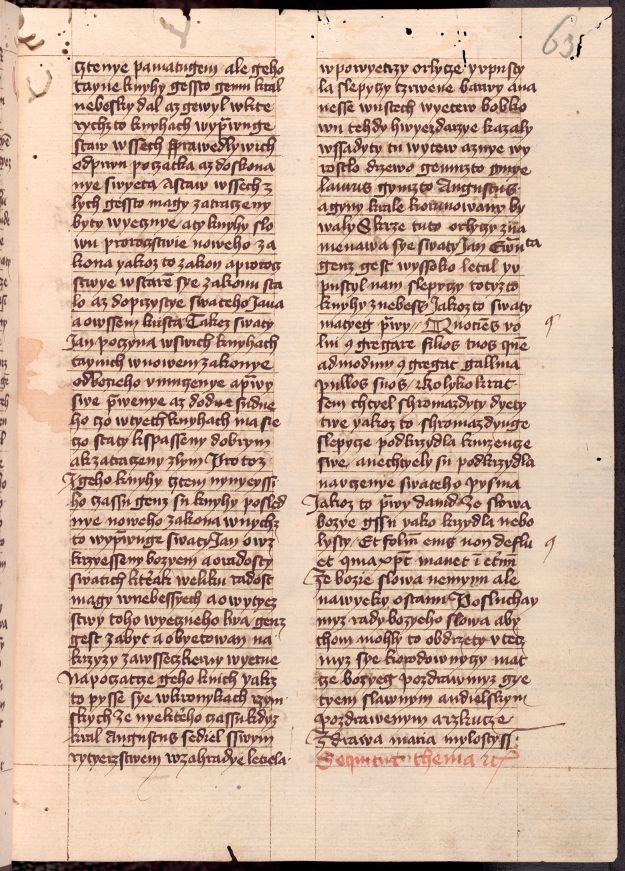 63
cztenye pamatugem ale geho
tayne knyhy gessto gemu kral
nebesky dal az gewyl wkte
rychzto knyhach wyp̄wuge
staw wssech prawedlywich
odpirwu poczatka az doskona
nye swyeta Astaw wssech z
lych gessto magy zatraczeny
byty wyecznye aty knyhy slo
wu proroczstwie noweho za
kona yakoz to zakon aprotog
stwye wstarē sye zakonu sta
lo az doprzystye swateho Jana
aowssem krista Takez swaty
Jan poczyna wswich knyhach
taynich wnowem zakonye
odbozieho vmuczenye aprwy
swe p̄wenye az dodne sudne
ho czo wtyech knyhach ma sie
czo staty kspasseny dobrym
ak zatraczeny zlym Protoz
Igeho knyhy cztem nynyeyssi
ho czassu genz su knyhy posled
nye noweho zakona wnychz
to wyp̄wuge swaty Jan owz
krzyesseny bozyem aoradosty
swatich kterak weliku radost
magy wnebessyech aowytyez
stwy toho wyeczneho krá genz
gest zabyt aobyetowan na
krzyzy zawsseczkerny wyerne
Napoczatcze geho knich yakz
to pysse sye wkronykach rzym
skych ze nyekteho czassu kdyz
kral Augustus sediel sswym
rytyerzstwem wzahradye letiela
wpowyetrzy orlycze yvpusty
la slepyczy czrwene barwy ana
nesse wustech wyetew bobko
wu tehdy hwyezdarzye kazaly
wssadyty tu wytew aznye wy
rostlo drzewo gemuzto gmye
laurus gymzto Augustus
aginy krale korunowany by
waly Skrze tuto orlyczy zna
menawa sye swaty Jan Ewāta
genz gest wyssoko letal yv
pustyl nam slepyczy totizto
knyhy znebess Jakoz to swaty
matyeg p̄wy Quociēs vo
lui ꝯgregare filios tuos quē
admodum ꝯgregat gallina
pullos suos Kolykokrat
sem chtyel shromazdyty dyety
twe yakoz to shromazdyuge
slepycze podkrzydla kurzencze
swe anechtyely su podkrzydla
nauczenye swateho pysma
Jakoz to p̄wy dauid Ze slowa
bozye gssu yako krzydla nebo
lysty Et foliū eius non deflu
et quia xp̄c manet ī etnū
Ze bozie slowa nemynu ale
nawyeky ostanu Posluchay
myz rady bozyeho slowa aby
chom mohly to obdrzety vtecz
myz sye kopodownyczy mat
cze bozyeg pozdrawmyz gye
tyem slawnym andielskym
pozdrawenym arzkucze
Zdrawa maria mylostyss
Sequitur thema ⁊c̄